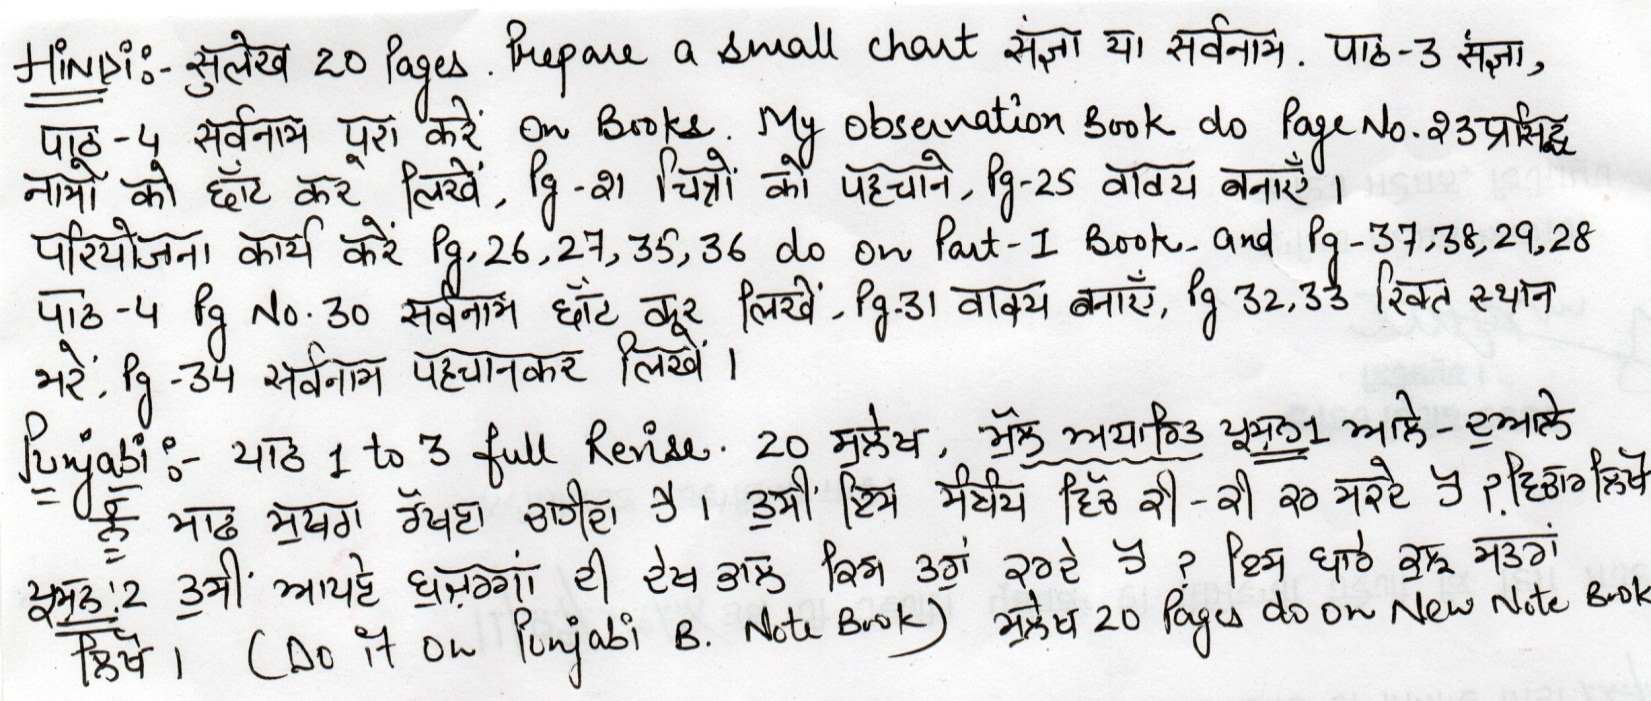 HiNDi:- सुलेख 20 Pages. Prepare a small chart संज्ञा या सर्वनाम. पाठ-3 संज्ञा,
पाठ-4 सर्वनाम पूरा करें on Books. My observation Book do Page No. 23 प्रसिद्ध
नामों को छाँट कर लिखें, Pg-21 चित्रों को पहचाने, Pg-25 वाक्य बनाएँ।
परियोजना कार्य करें Pg. 26, 27, 35, 36 do on Part-I Book. and Pg-37,38,29,28
पाठ-4 Pg No. 30 सर्वनाम छाँट कर लिखें, Pg.31 वाक्य बनाएँ, Pg 32,33 रिक्त स्थान
भरें, Pg-34 सर्वनाम पहचानकर लिखें।
Punjabi:- ਪਾਠ 1 to 3 full Revise. 20 ਸੁਲੇਖ, ਮੁੱਲ ਅਧਾਰਿਤ ਪ੍ਰਸ਼ਨ 1 ਆਲੇ-ਦੁਆਲੇ
ਨੂੰ ਸਾਫ ਸੁਥਰਾ ਰੱਖਣਾ ਚਾਹੀਦਾ ਹੈ। ਤੁਸੀਂ ਇਸ ਸੰਬੰਧ ਵਿੱਚ ਕੀ-ਕੀ ਕਰ ਸਕਦੇ ਹੋ? ਵਿਚਾਰ ਲਿਖੋ
ਪ੍ਰਸ਼ਨ:2 ਤੁਸੀਂ ਆਪਣੇ ਬੁਜ਼ਰਗਾਂ ਦੀ ਦੇਖ ਭਾਲ ਕਿਸ ਤਰਾਂ ਕਰਦੇ ਹੋ? ਇਸ ਬਾਰੇ ਕੁਝ ਸਤਰਾਂ
ਲਿਖੋ। (Do it on Punjabi B. Note Book) ਸੁਲੇਖ 20 Pages do on New Note Book